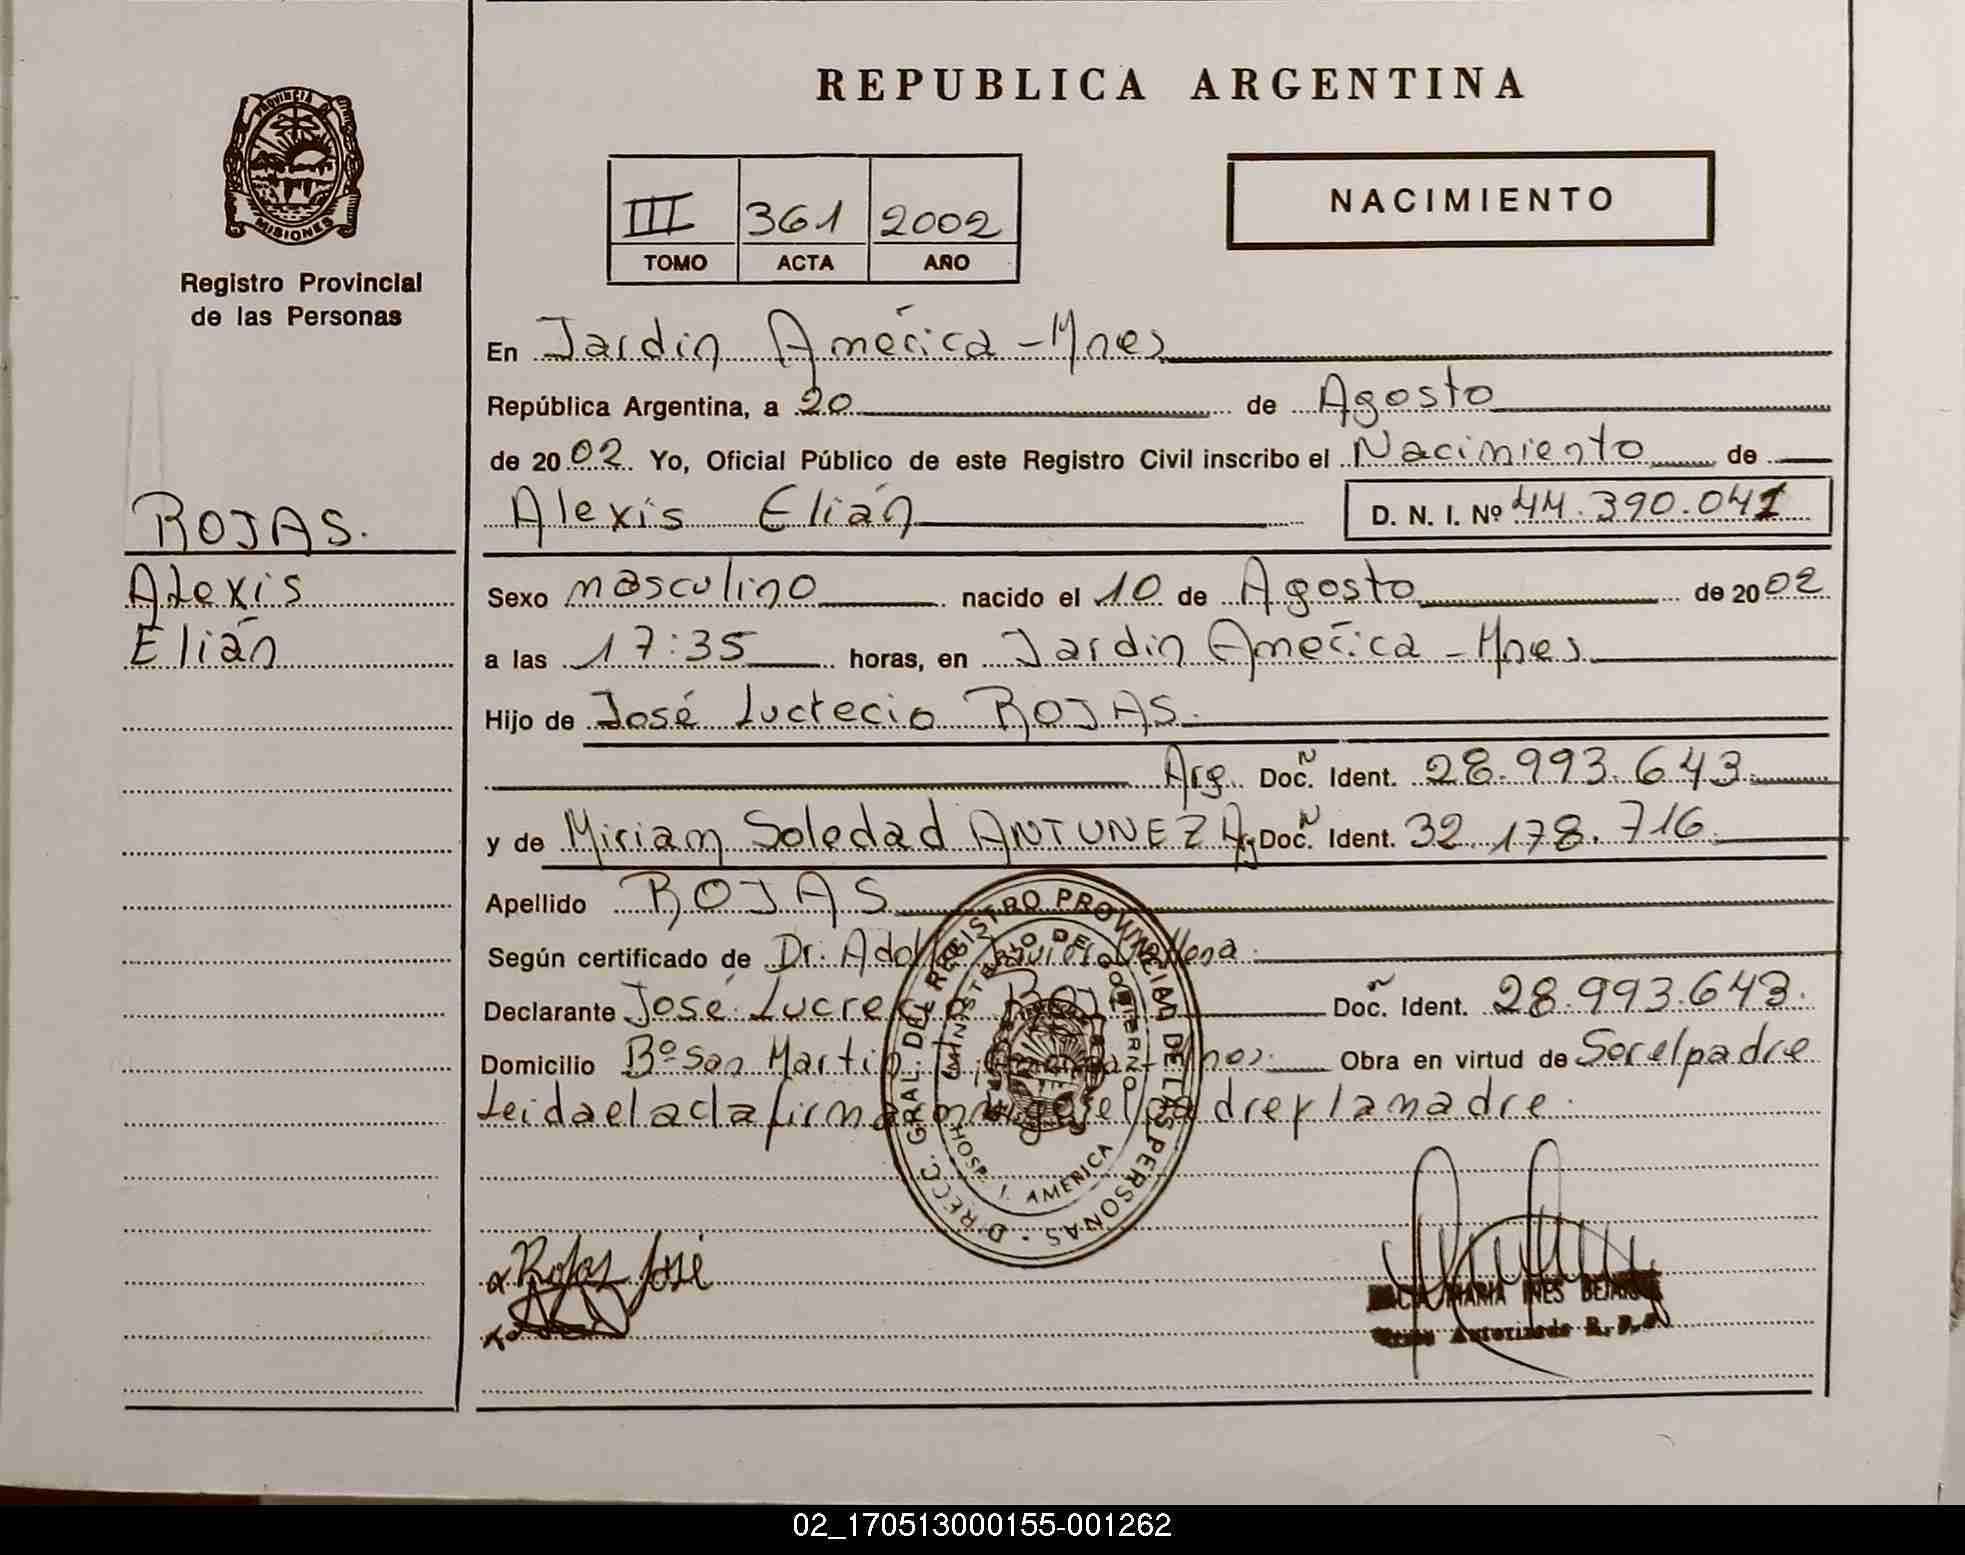 REPUBLICA ARGENTINA
PROVINCIA DE MISIONES
Registro Provincial
de las Personas
III 361 2002
TOMO ACTA AÑO
NACIMIENTO
En Jardin América - Mnes
República Argentina, a 20 de Agosto
de 2002. Yo, Oficial Público de este Registro Civil inscribo el Nacimiento de
Alexis Elián D. N. I. Nº 44.390.041
ROJAS.
Alexis
Elián
Sexo masculino nacido el 10 de Agosto de 2002
a las 17:35 horas, en Jardin América - Mnes
Hijo de José Luctecio ROJAS.
Arg. Doc. Ident. 28.993.643
y de Miriam Soledad ANTUNEZ Arg Doc. Ident. 32.178.716
Apellido ROJAS
Según certificado de Dr.
Declarante José Doc. Ident. 28.993.643.
Domicilio Bº San Martin Obra en virtud de Ser el padre
Leida el acta firman el padre y la madre.
DIRECC. GRAL. DEL REGISTRO PROVINCIAL DE LAS PERSONAS
MINISTERIO DE GOBIERNO
HOSP. J. AMERICA
Rojas José
MARIA INES
Autorizado R. P. P.
02_170513000155-001262